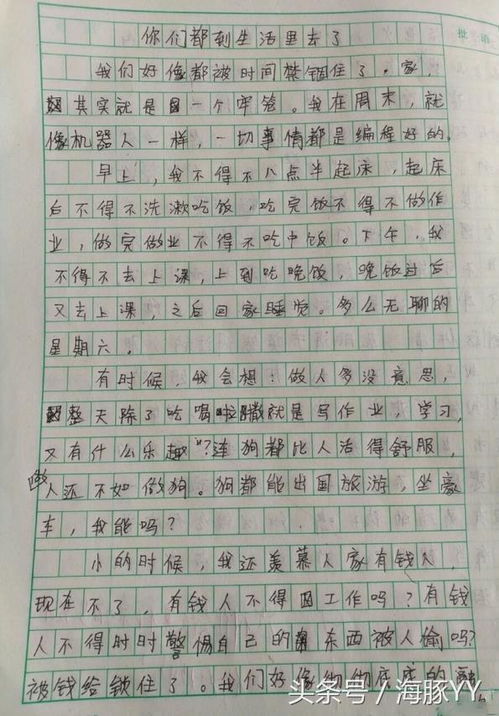 你们都到生活里去了
批
我们好像都被时间禁锢住了。家,
其实就是一个牢笼。我在周末,就
像机器人一样,一切事情都是编程好的。
早上,我不得不八点半起床,起床
后不得不洗漱吃饭,吃完饭不得不做作
业,做完做业不得不吃中饭。下午,我
不得不去上课,上到吃晚饭,晚饭过后
又去上课,之后回家睡觉。多么无聊的
星期六。
有时候,我会想:做人多没意思,
整天除了吃喝拉撒就是写作业,学习,
又有什么乐趣?连狗都比人活得舒服,
做人还不如做狗。狗都能出国旅游,坐豪
车,我能吗?
小的时候,我还羡慕人家有钱人,
现在不了,有钱人不得工作吗?有钱
人不得时时警惕自己的东西被人偷吗?
被钱给锁住了。我们好像彻彻底底的
头条号 / 海豚YY